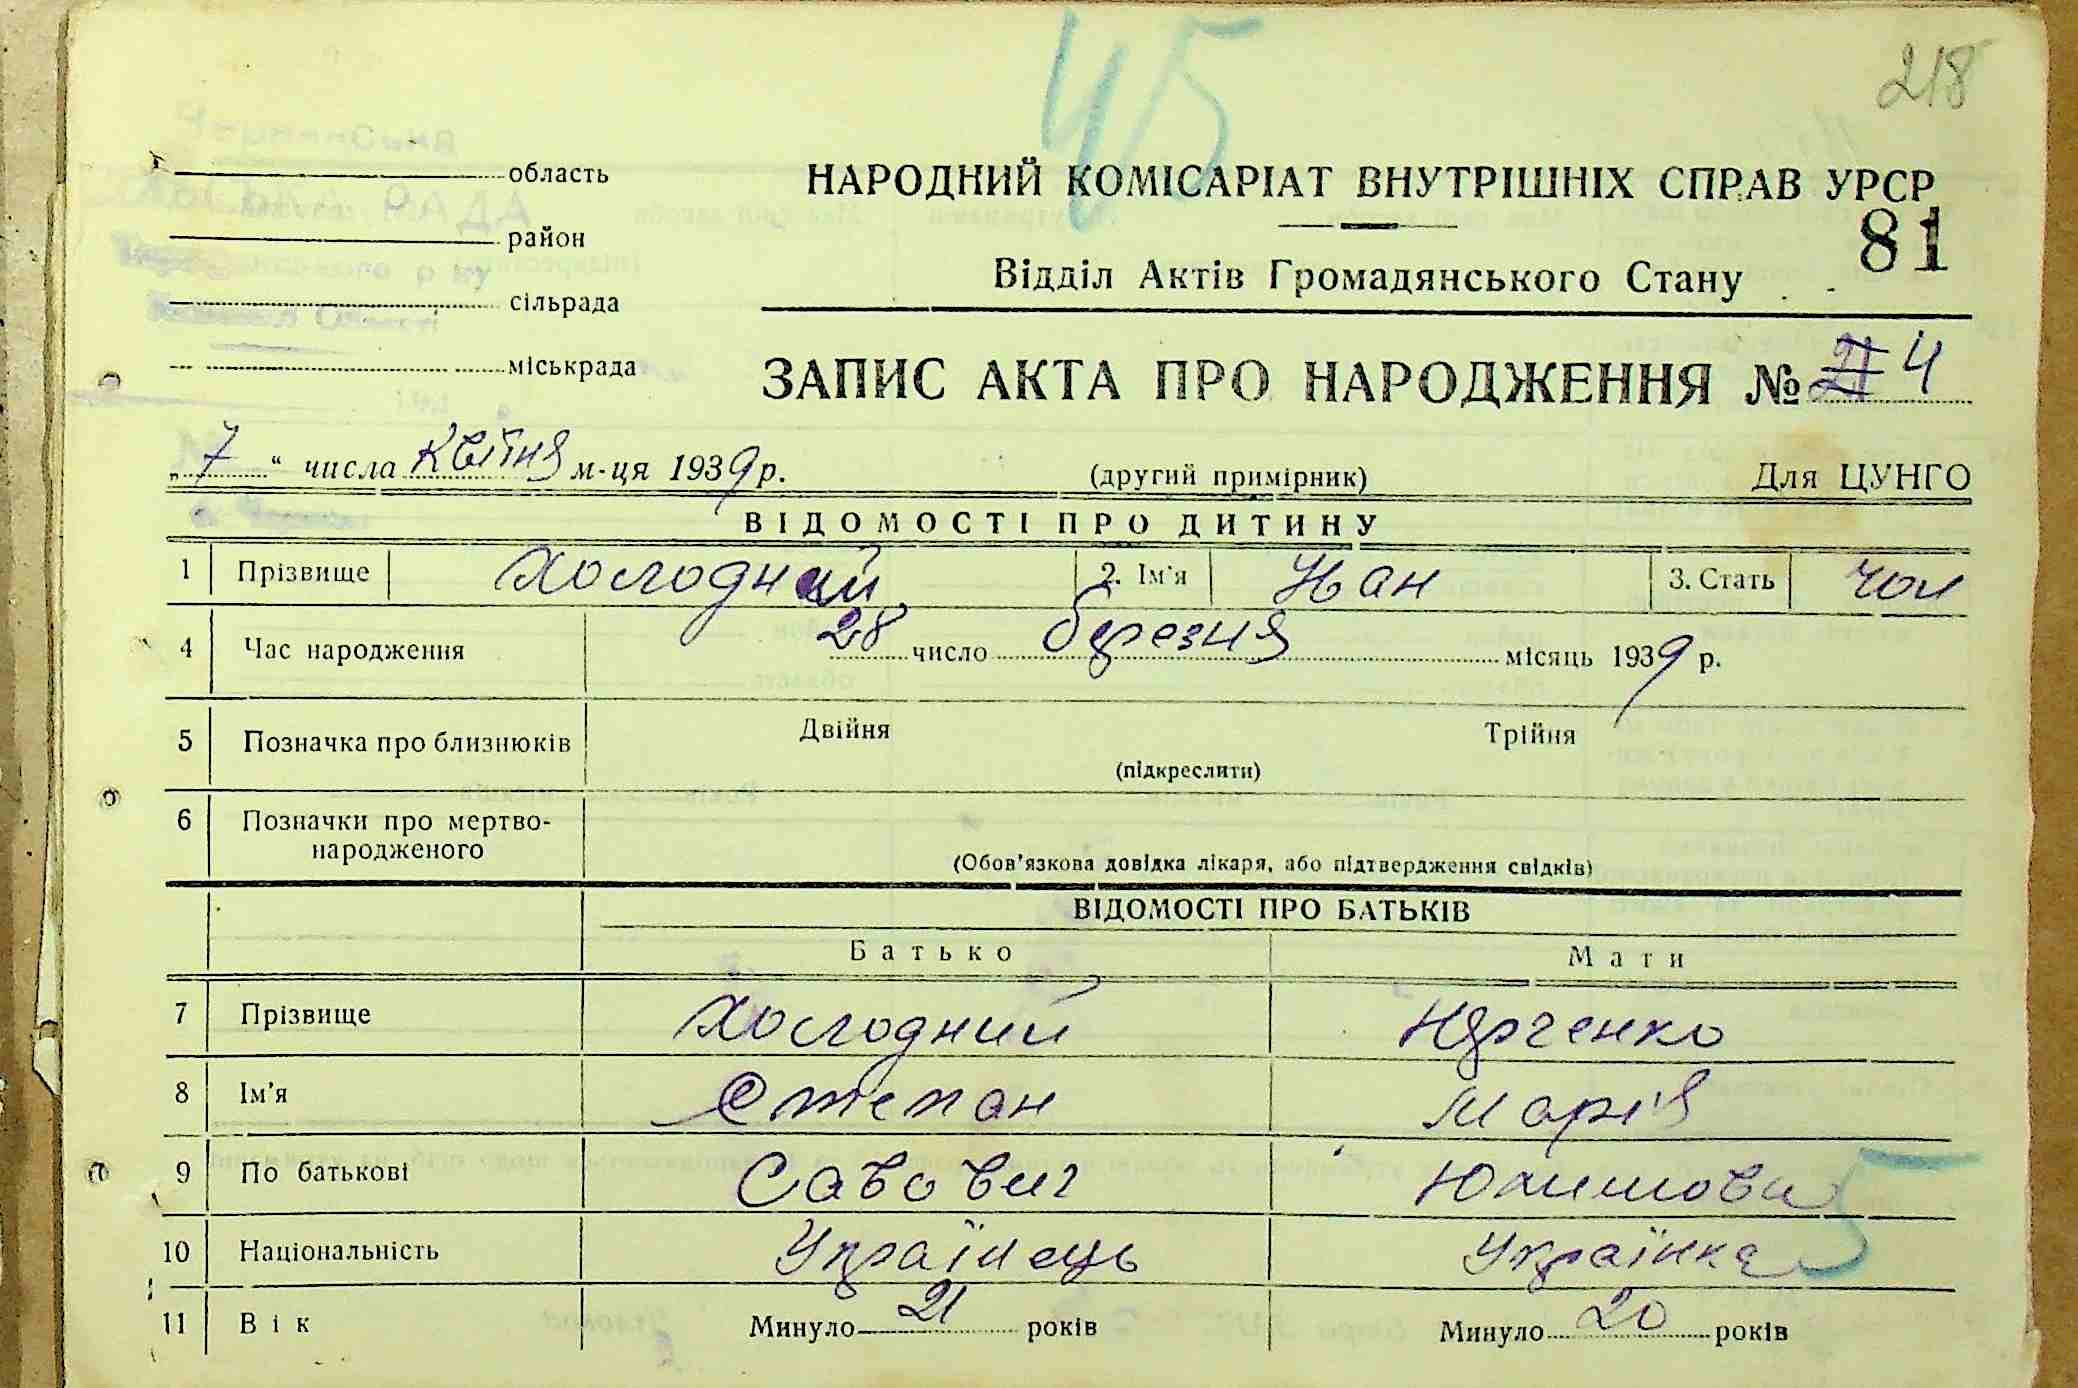 45
218
область
НАРОДНИЙ КОМІСАРІАТ ВНУТРІШНІХ СПРАВ УРСР
район
81
Відділ Актів Громадянського Стану
сільрада
міськрада
ЗАПИС АКТА ПРО НАРОДЖЕННЯ № 4
„7“ числа Квітня м-ця 1939 р. (другий примірник) Для ЦУНГО
ВІДОМОСТІ ПРО ДИТИНУ
1 Прізвище Холодний 2. Ім'я Іван 3. Стать чол
4 Час народження 28 число березня місяць 1939 р.
5 Позначка про близнюків Двійня Трійня
(підкреслити)
6 Позначки про мертво-
народженого
(Обов'язкова довідка лікаря, або підтвердження свідків)
ВІДОМОСТІ ПРО БАТЬКІВ
Батько Мати
7 Прізвище Холодний
8 Ім'я Степан Марія
9 По батькові Савович
10 Національність Українець Українка
11 Вік Минуло 21 років Минуло 20 років